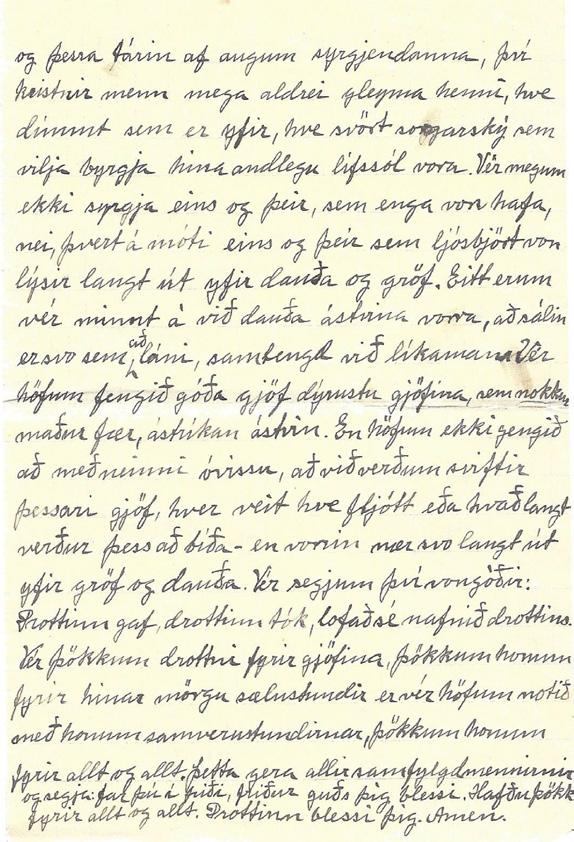 og þerra tárin af augum syrgjendanna, því
kristnir menn mega aldrei gleyma henni, hve
dimmt sem er yfir, hve svört sorgarský sem
vilja byrgja hina andlegu lífssól vora. Vér megum
ekki syrgja eins og þeir, sem enga von hafa,
nei, þvert á móti eins og þeir sem ljósbjört von
lýsir langt út yfir dauða og gröf. Eitt erum
vér minnt á við dauða ástvina vorra, að sálin
er svo sem að láni, samtengd við líkamann. Vér
höfum fengið góða gjöf dýrustu gjöfina, sem nokkur
maður fær, ástríkan ástvin. En höfum ekki gengið
að með neinni óvissu, að við verðum sviftir
þessari gjöf, hver veit hve fljótt eða hvað langt
verður þess að bíða - en vonin nær svo langt út
yfir gröf og dauða. Vér segjum því vongóðir:
Drottinn gaf, drottinn tók, lofað sé nafnið drottins.
Vér þökkum drottni fyrir gjöfina, þökkum honum
fyrir hinar mörgu sælustundir er vér höfum notið
með honum samverustundirnar, þökkum honum
fyrir allt og allt. Þetta gera allir samfylgdmennirnir
og segja: far þú í friði, friður guðs þig blessi. Hafðu þökk
fyrir allt og allt. Drottinn blessi þig. Amen.